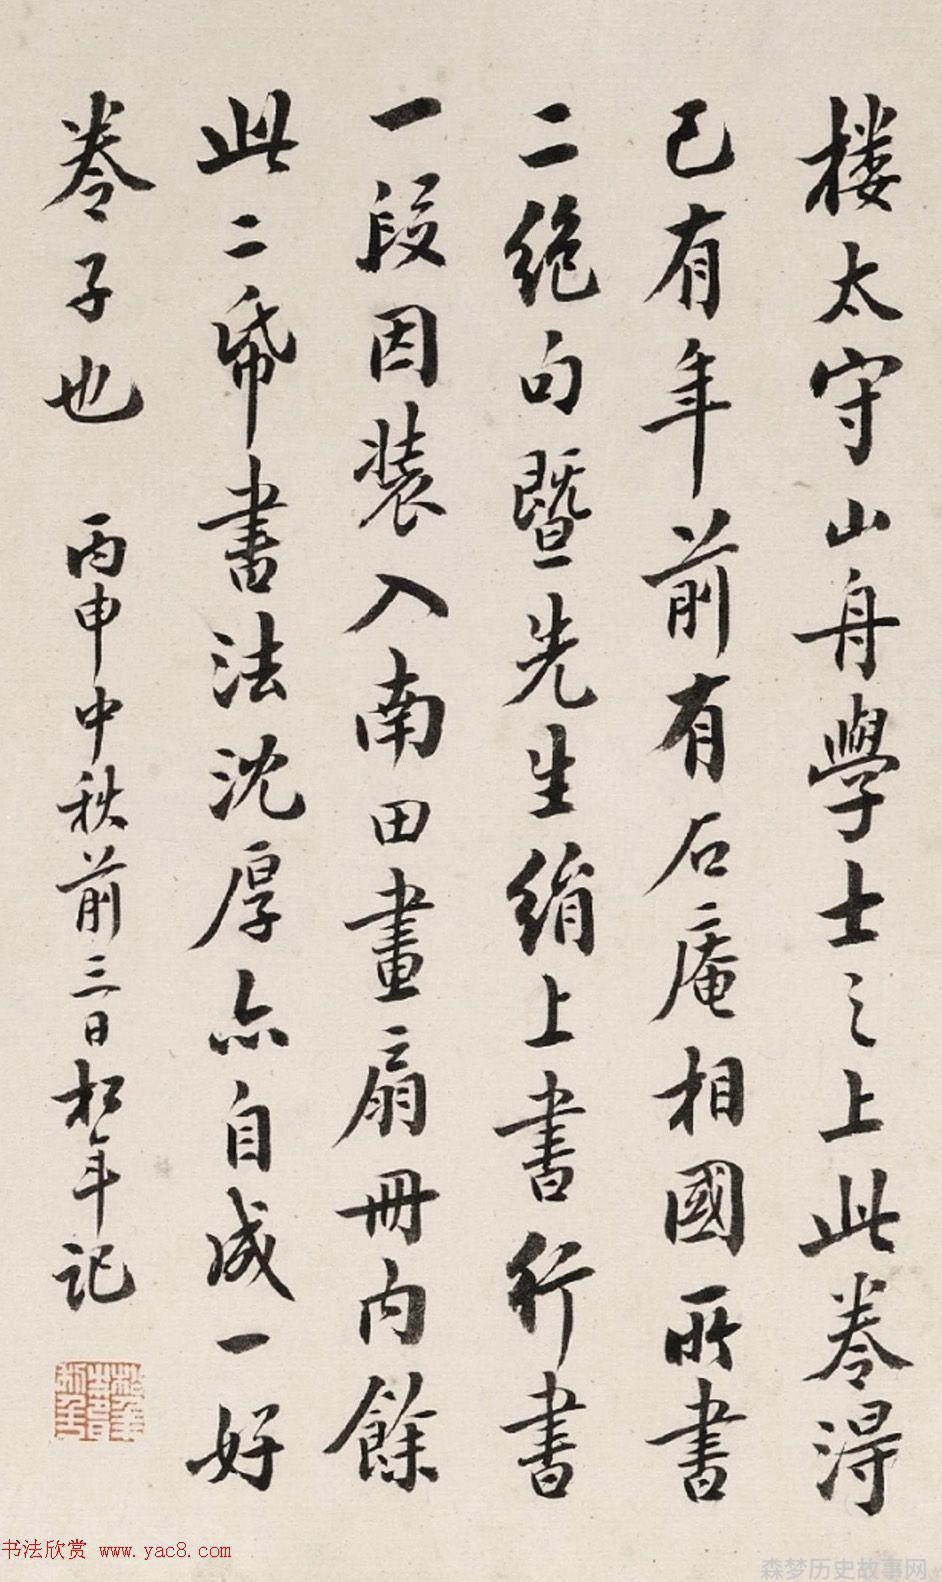 楼太守山舟學士之上此卷得
已有年前有石庵相國所書
二絶句暨先生絹上書行書
一段因裝入南田畫扇冊内餘
此二帋書法沈厚亦自成一好
卷子也 丙申中秋前三日松年記
书法欣赏 www.yac8.com
森梦历史故事网